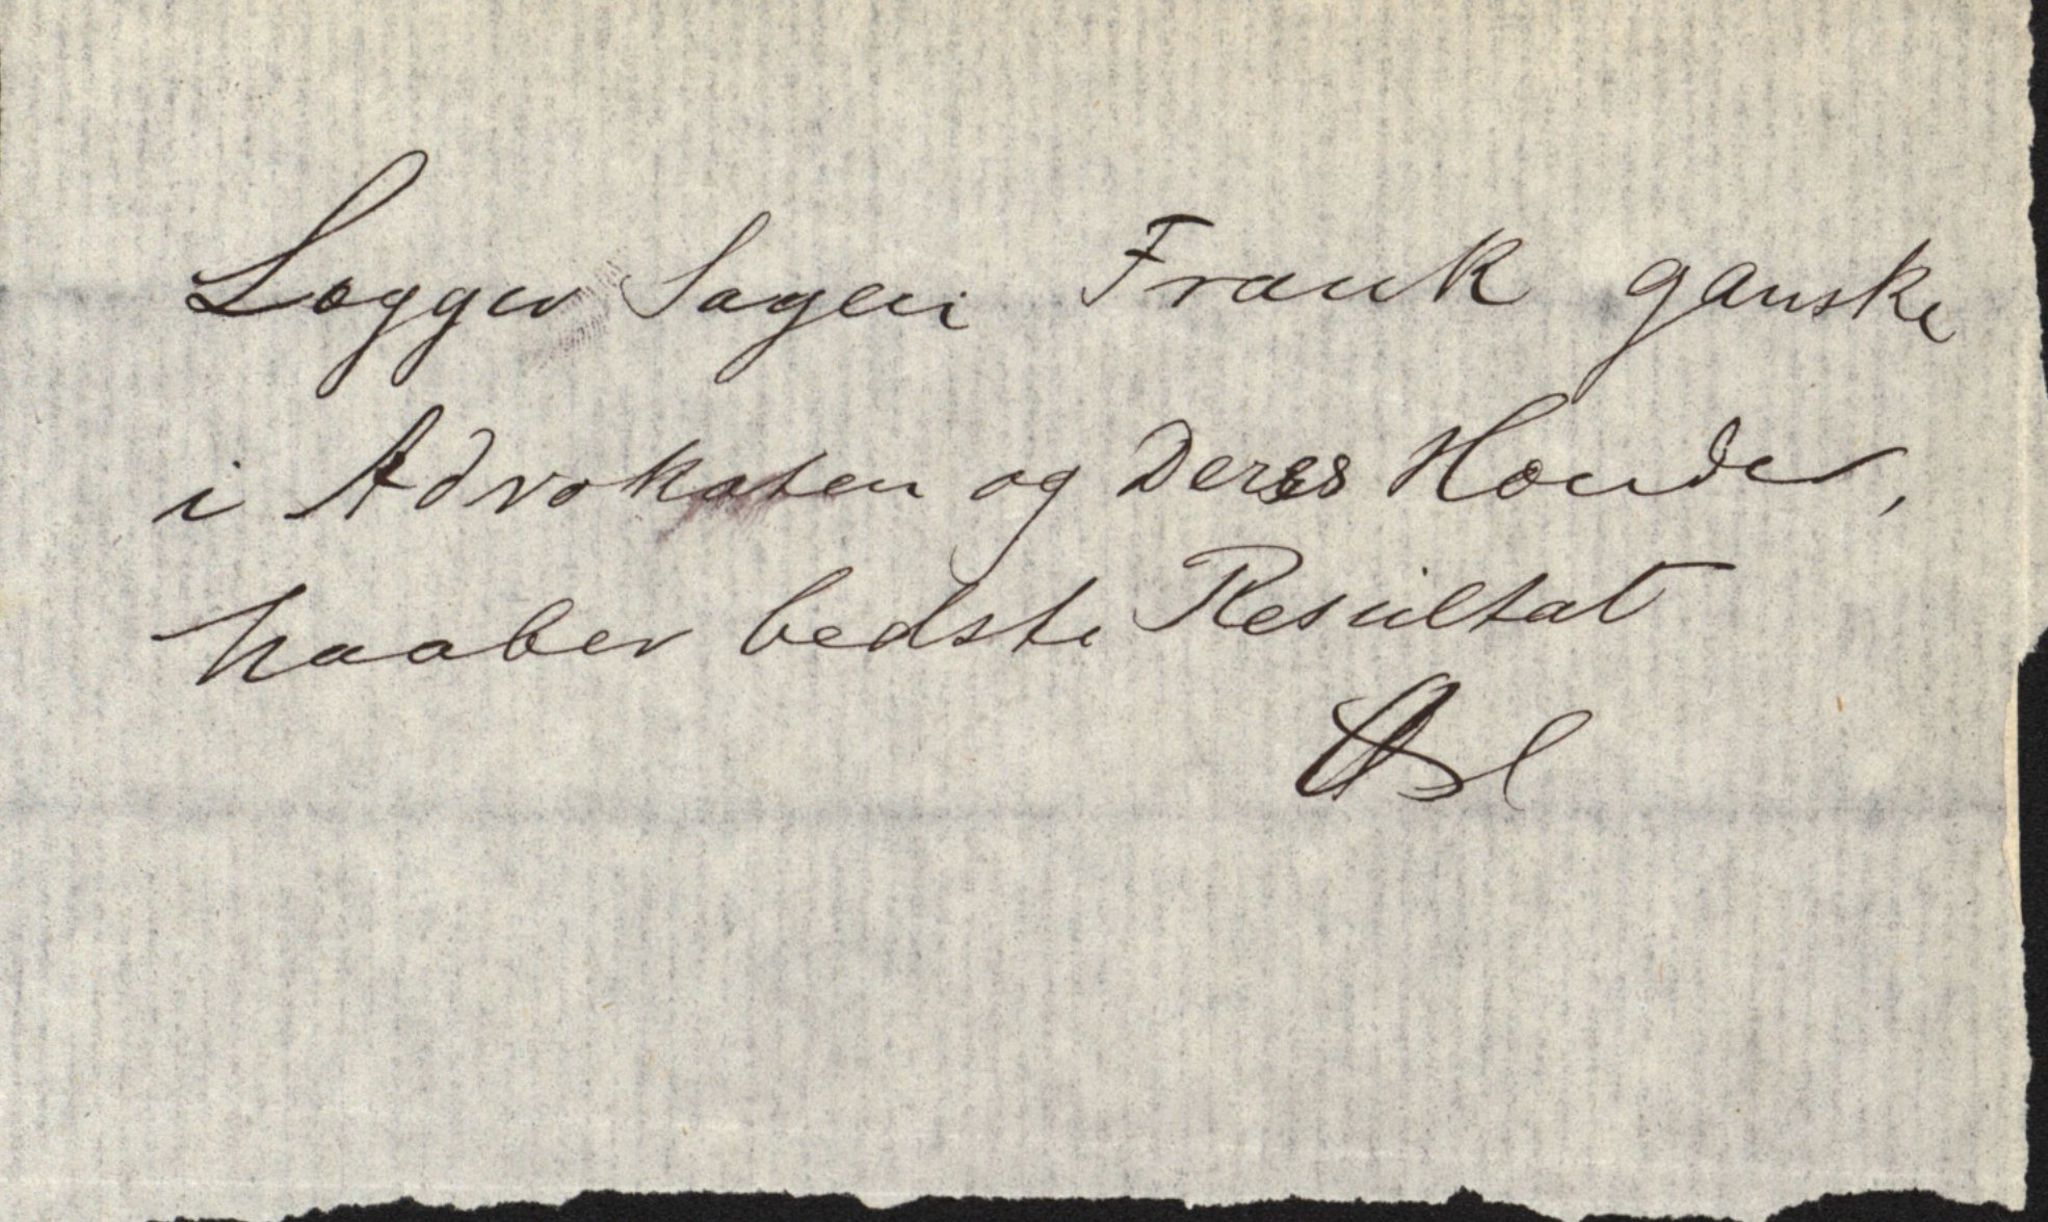 Lægger Sagen i Frank ganske
i Advokaten og Deres Hænder,
haaber bedste Resultat